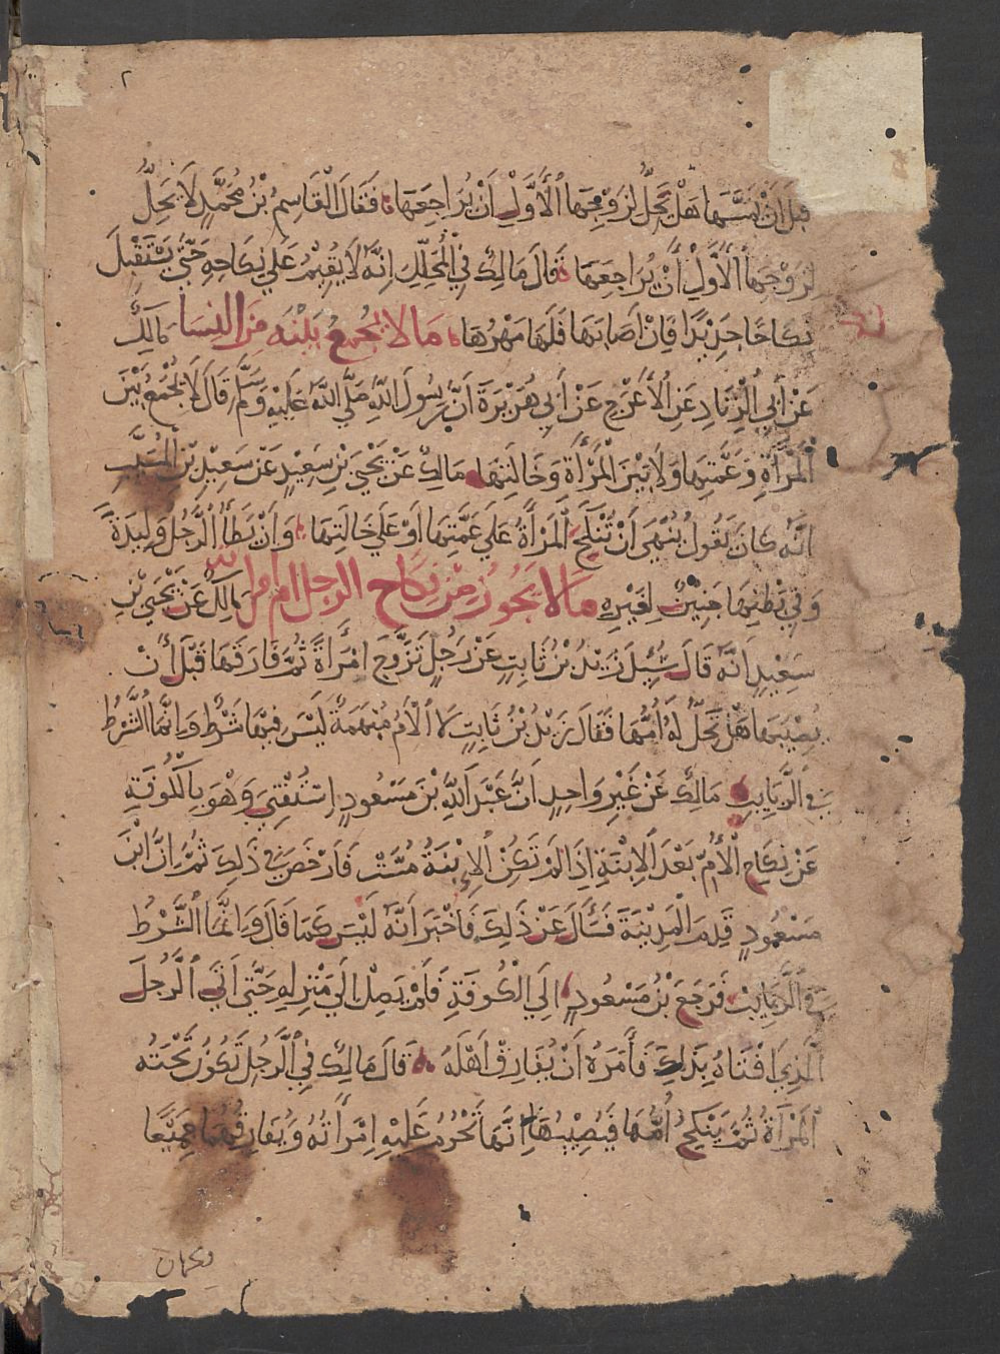 ٢
قَبْلَ أَنْ يَمَسَّهَا هَلْ تَحِلُّ لِزَوْجِهَا الْأَوَّلِ أَنْ يُرَاجِعَهَا فَقَالَ الْقَاسِمُ بْنُ مُحَمَّدٍ لَا يَحِلُّ
لِزَوْجِهَا الْأَوَّلِ أَنْ يُرَاجِعَهَا قَالَ مَالِكٌ فِي الْمُحَلِّلِ إِنَّهُ لَا يُقِيمُ عَلَى نِكَاحِهِ حَتَّى يَسْتَقْبِلَ
نِكَاحًا جَدِيْدًا فَإِنْ أَصَابَهَا فَلَهَا مَهْرُهَا مَا لَا يُجْمَعُ بَيْنَهُ مِنَ النِّسَا مَالِكٌ
عَنْ أَبِي الزِّنَادِ عَنِ الْأَعْرَجِ عَنْ أَبِي هُرَيْرَةَ أَنَّ رَسُولَ اللَّهِ صَلَّى اللَّهُ عَلَيْهِ وَسَلَّمَ قَالَ لَا يُجْمَعُ بَيْنَ
الْمَرْأَةِ وَعَمَّتِهَا وَلَا بَيْنَ الْمَرْأَةِ وَخَالَتِهَا مَالِكٌ عَنْ يَحْيَى بْنِ سَعِيْدٍ عَنْ سَعِيْدِ بْنِ الْمُسَيَّبِ
أَنَّهُ كَانَ يَقُولُ يُنْهَى أَنْ تُنْكَحَ الْمَرْأَةُ عَلَى عَمَّتِهَا أَوْ عَلَى خَالَتِهَا وَأَنْ يَطَأَ الرَّجُلُ وَلِيدَةً
وَفِي بَطْنِهَا جَنِيْنٌ لِغَيْرِهِ مَا لَا يَجُوزُ مِنْ نِكَاحِ الرجل ام امراته مَالِكٌ عَنْ يَحْيَى بْنِ
سَعِيْدٍ أَنَّهُ قَالَ سُئِلَ زَيْدُ بْنُ ثَابِتٍ عَنْ رَجُلٍ تَزَوَّجَ امْرَأَةً ثُمَّ فَارَقَهَا قَبْلَ أَنْ
يُصِيْبَهَا هَلْ تَحِلُّ لَهُ أُمُّهَا فَقَالَ زَيْدُ بْنُ ثَابِتٍ لَا الْأُمُّ مُبْهَمَةٌ لَيْسَ فِيْهَا شَرْطٌ وَإِنَّمَا الشَّرْطُ
فِي الرَّبَايِبِ مَالِكٌ عَنْ غَيْرِ وَاحِدٍ أَنَّ عَبْدَ اللَّهِ بْنَ مَسْعُودٍ اسْتُفْتِيَ وَهْوَ بِالْكُوفَةِ
عَنْ نِكَاحِ الْأُمِّ بَعْدَ الْإِبْنَةِ إِذَا لَمْ تَكُنِ الْإِبْنَةُ مُسَّتْ فَأَرْخَصَ فِي ذَلِكَ ثُمَّ إِنَّ ابْنَ
مَسْعُودٍ قَدِمَ الْمَدِيْنَةَ فَسَأَلَ عَنْ ذَلِكَ فَأُخْبِرَ أَنَّهُ لَيْسَ كَمَا قَالَ وَإِنَّمَا الشَّرْطُ
فِي الرَّبَايِبِ فَرَجَعَ بْنُ مَسْعُودٍ إِلَى الْكُوفَةِ فَلَمْ يَصِلْ إِلَى مَنْزِلِهِ حَتَّى أَتَى الرَّجُلَ
الَّذِي افْتَاهُ بِذَلِكَ فَأَمَرَهُ أَنْ يُفَارِقَ أَهْلَهُ قَالَ مَالِكٌ فِي الرَّجُلِ تَكُونُ تَحْتَهُ
الْمَرْأَةُ ثُمَّ يَنْكِحُ أُمَّهَا فَيُصِيْبُهَا إِنَّهَا تَحْرُمُ عَلَيْهِ امْرَأَتُهُ وَيُفَارِقُهُمَا جَمِيْعًا